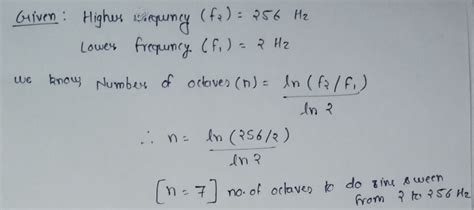 Given : Higher frequency (f₂) = 256 Hz
Lower frequency (f₁) = 2 Hz
We know Number of octaves (n) = ln (f₂/f₁) / ln 2
∴ n = ln (256/2) / ln 2
[n = 7] no. of octaves to do sine sween
from 2 to 256 Hz